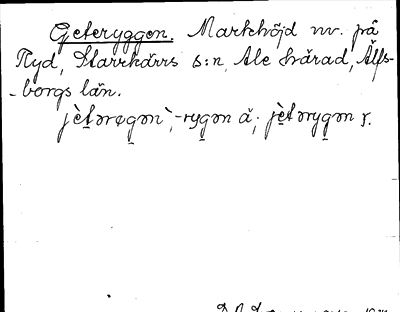 Geteryggen. Markhöjd nv. på
Ryd, Starrkärrs s:n, Ale härad, Älfs-
-borgs län.
jètərøgən`, -rygən ä; jètərygən